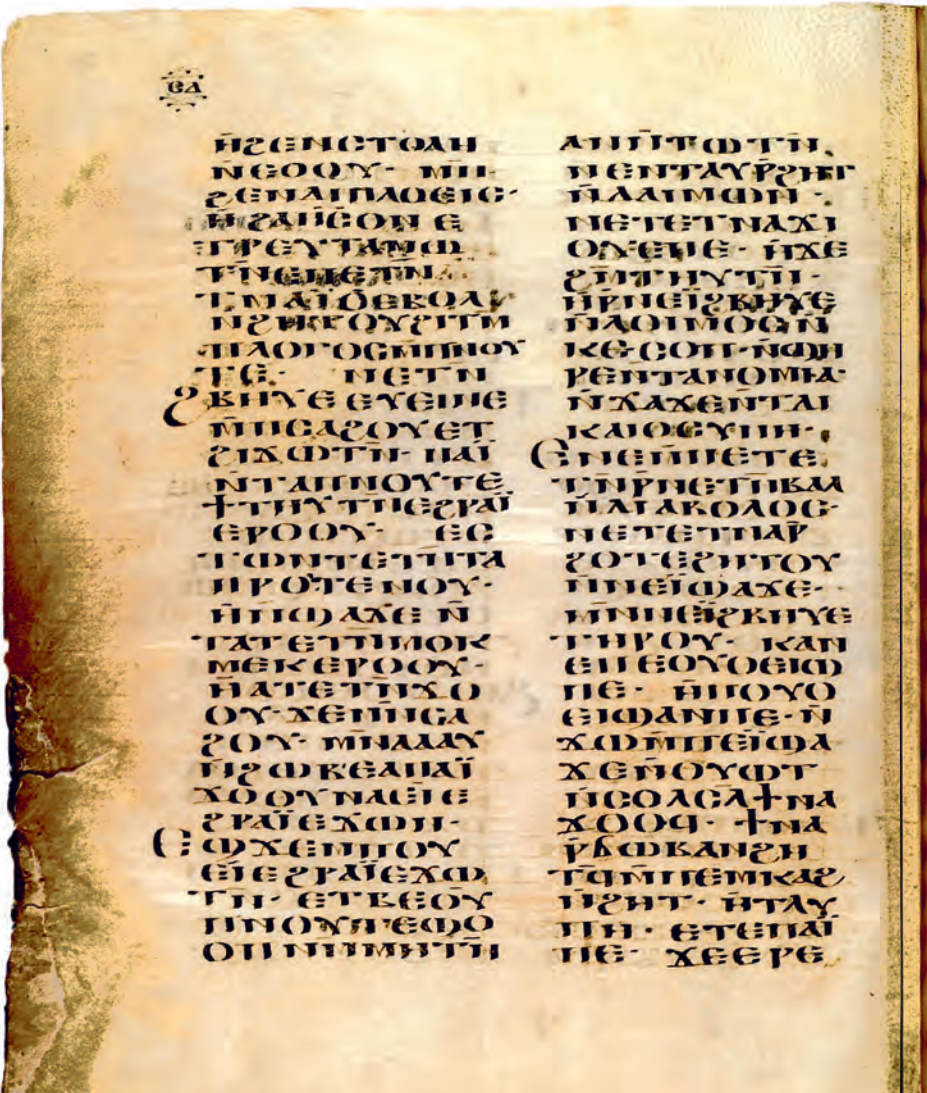 ⲥⲇ
ⲏϩⲉⲛⲥⲧⲟⲗⲏ
ⲛ̄ⲉⲟⲟⲩ· ⲙⲛ̄
ϩⲉⲛⲁⲓⲡⲗⲟⲉⲓⲥ·
ⲏ ϩⲁⲡ̄ⲥⲟⲛ ⲉ
ⲧⲣⲉⲩⲧⲁⲙⲱ
ⲡⲗⲟⲅⲟⲥⲙ̄ⲡⲛⲟⲩ
ⲧⲉ· ⲛⲉⲧⲛ̄
ϩⲃⲏⲩⲉ ⲉⲩⲉⲓⲛⲉ
ⲙ̄ⲡⲥⲁϩⲟⲩ ⲉⲧ
ϩⲓϫⲱⲧⲛ̄· ⲡⲁⲓ̈
ⲛ̄ⲧⲁⲡⲛⲟⲩⲧⲉ
ϯⲧⲏⲩⲧⲛ̄ⲉϩⲣⲁⲓ̈
ⲉⲣⲟⲟⲩ· ⲉⲥ
ⲧⲱⲛⲧⲉⲧⲛ̄ⲧⲁ
ⲡⲣⲟ ⲧⲉⲛⲟⲩ·
ⲏ ⲡ̄ϣⲁϫⲉ ⲛ̄
ⲧⲁⲧⲉⲧⲛ̄ⲙⲟⲕ
ⲙⲉⲕ ⲉⲣⲟⲟⲩ·
ⲏ ⲁⲧⲉⲧⲛ̄ϫⲟ
ⲟⲩ· ϫⲉⲙ̄ⲡⲥⲁ
ϩⲟⲩ· ⲙⲛ̄ⲗⲁⲁⲩ
ⲛ̄ϩⲱⲕ ⲉⲁⲡⲁⲓ̈
ϫⲟⲟⲩ ⲛⲁⲉⲓ ⲉ
ϩⲣⲁⲓ̈ ⲉϫⲱⲛ·
ⲉϣϫⲉⲙ̄ⲡⲟⲩ
ⲉⲓ ⲉϩⲣⲁⲓ̈ ⲉϫⲱ
ⲧⲛ̄· ⲉⲧⲃⲉⲟⲩ
ⲡⲛⲟⲩⲧⲉ ϣⲟ
ⲟⲡ ⲛⲙ̄ⲙⲏⲧⲛ̄
ⲁⲛ ⲛ̄ⲧⲱⲧⲛ̄
ⲛⲉⲛⲧⲁⲩⲣ̄ϩⲏⲧ
ⲛ̄ⲇⲁⲓⲙⲱⲛ·
ⲛⲉⲧⲉⲧⲛⲁϫⲓ
ⲟⲩⲉⲛⲉ· ⲏ ϫⲉ
ϩⲙ̄ⲧⲏⲩⲧⲛ̄·
ⲏ ⲣ̄ⲛⲉⲓ̈ϩⲃⲏⲩⲉ
ⲛ̄ⲗⲟⲓⲙⲟⲥ ⲛ̄
ⲕⲉⲥⲟⲡ· ⲛ̄ϣⲏ
ⲣⲉⲛ̄ⲧⲁⲛⲟⲙⲓⲁ·
ⲛ̄ϫⲁϫⲉⲛ̄ⲧⲇⲓ
ⲕⲁⲓⲟⲥⲩⲛⲏ·
ⲉⲛⲉⲙ̄ⲡⲉⲧⲉ
ⲧⲛ̄ⲣ̄ⲡⲉⲧⲛ̄ⲃⲁⲗ
ⲛ̄ⲇⲓⲁⲃⲟⲗⲟⲥ·
ⲛⲉⲧⲉⲧⲛⲁⲣ̄
ϩⲟⲧⲉ ϩⲏⲧⲟⲩ
ⲛ̄ⲛⲉⲓ̈ϣⲁϫⲉ·
ⲙⲛ̄ⲛⲉⲓ̈ϩⲃⲏⲩⲉ
ⲧⲏⲣⲟⲩ· ⲕⲁⲛ
ⲉⲡⲉⲟⲩⲟⲉⲓϣ
ⲡⲉ· ⲏ ⲡⲟⲩⲟ
ⲉⲓϣ ⲁⲛ ⲡⲉ· ⲛ̄
ϫⲱ ⲙ̄ⲡⲉⲓ̈ϣⲁ
ϫⲉ ⲛ̄ⲟⲩⲱⲧ
ⲛ̄ⲥⲟⲗⲥⲗ̄ ϯⲛⲁ
ϫⲟⲟϥ· ϯⲛⲁ
ⲣ̄ⲃ̄ⲱⲕⲁⲛϩⲏ
ⲧϥ̄ ⲙ̄ⲡⲉⲙⲕⲁϩ
ⲛ̄ϩⲏⲧ· ⲏ ⲧⲗⲩ
ⲡⲏ· ⲉⲧⲉⲡⲁⲓ̈
ⲡⲉ· ϫⲉⲉⲣⲉ